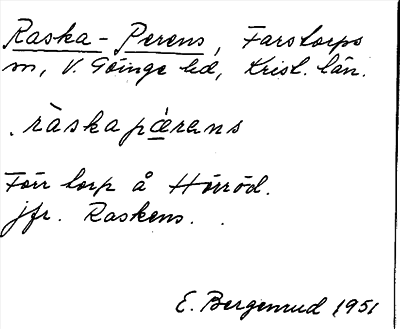 Raska-Perens, Farstorps
sn, V. Göinge hd, Krist. län.
. ràskapæ̀rəns
Förr torp å Hörröd.
jfr. Raskens. .
E. Bergenrud 1951